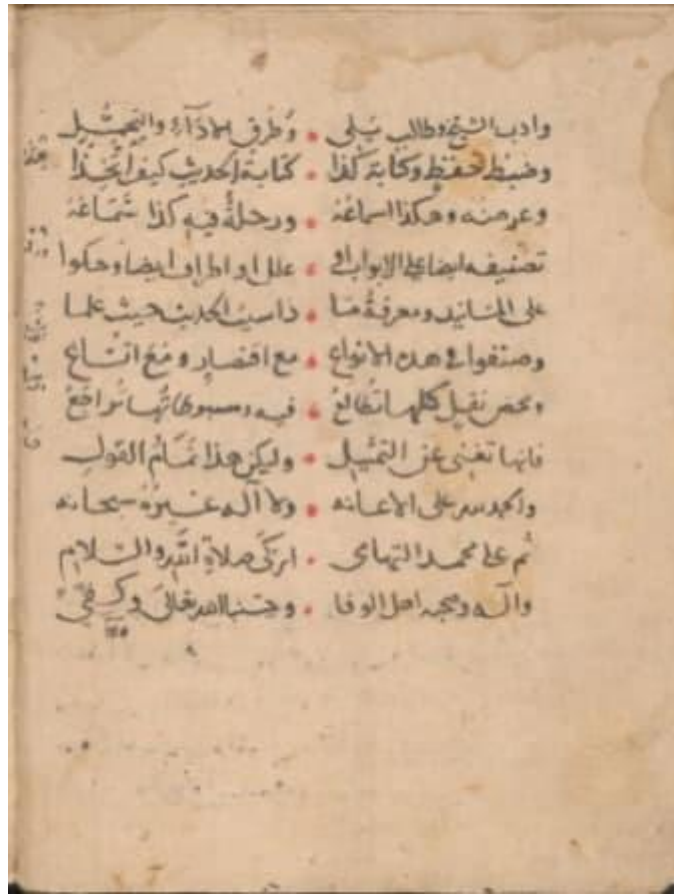 وادب الشيخ وطالب يلى • وطرق الاداء والتحمل
وضبط حفظ وكتابة كذا • كتابة الحديث كيف اتخذا
وعرضه وهكذا اسماعه • ورحلة فيه كذا سماعه
تصنيفه ايضا على الابواب او • علل او اطراف ايضا وحكوا
على المسانيد ومعرفة ما • الحديث حيث علما
وصنفوا في هذه الانواع • مع اقتصار ومع اتساع
ومحض نقل كلها تطالع • فيه ومبسوطاتها تراجع
فانها تغنى عن التمثيل • وليكن هذا تمام القول
والحمد لله على الاعانه • ولا اله غيره سبحانه
ثم على محمد التهامى • ازكى صلاة الله والسلام
وآله وصحبه اهل الوفا • وحسبنا الله تعالى وكفى